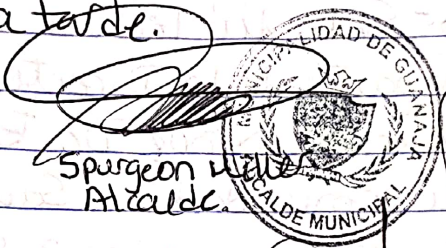 a tarde.
Spurgeon Miller
Alcalde.
MUNICIPALIDAD DE GUANAJA
ALCALDE MUNICIPAL